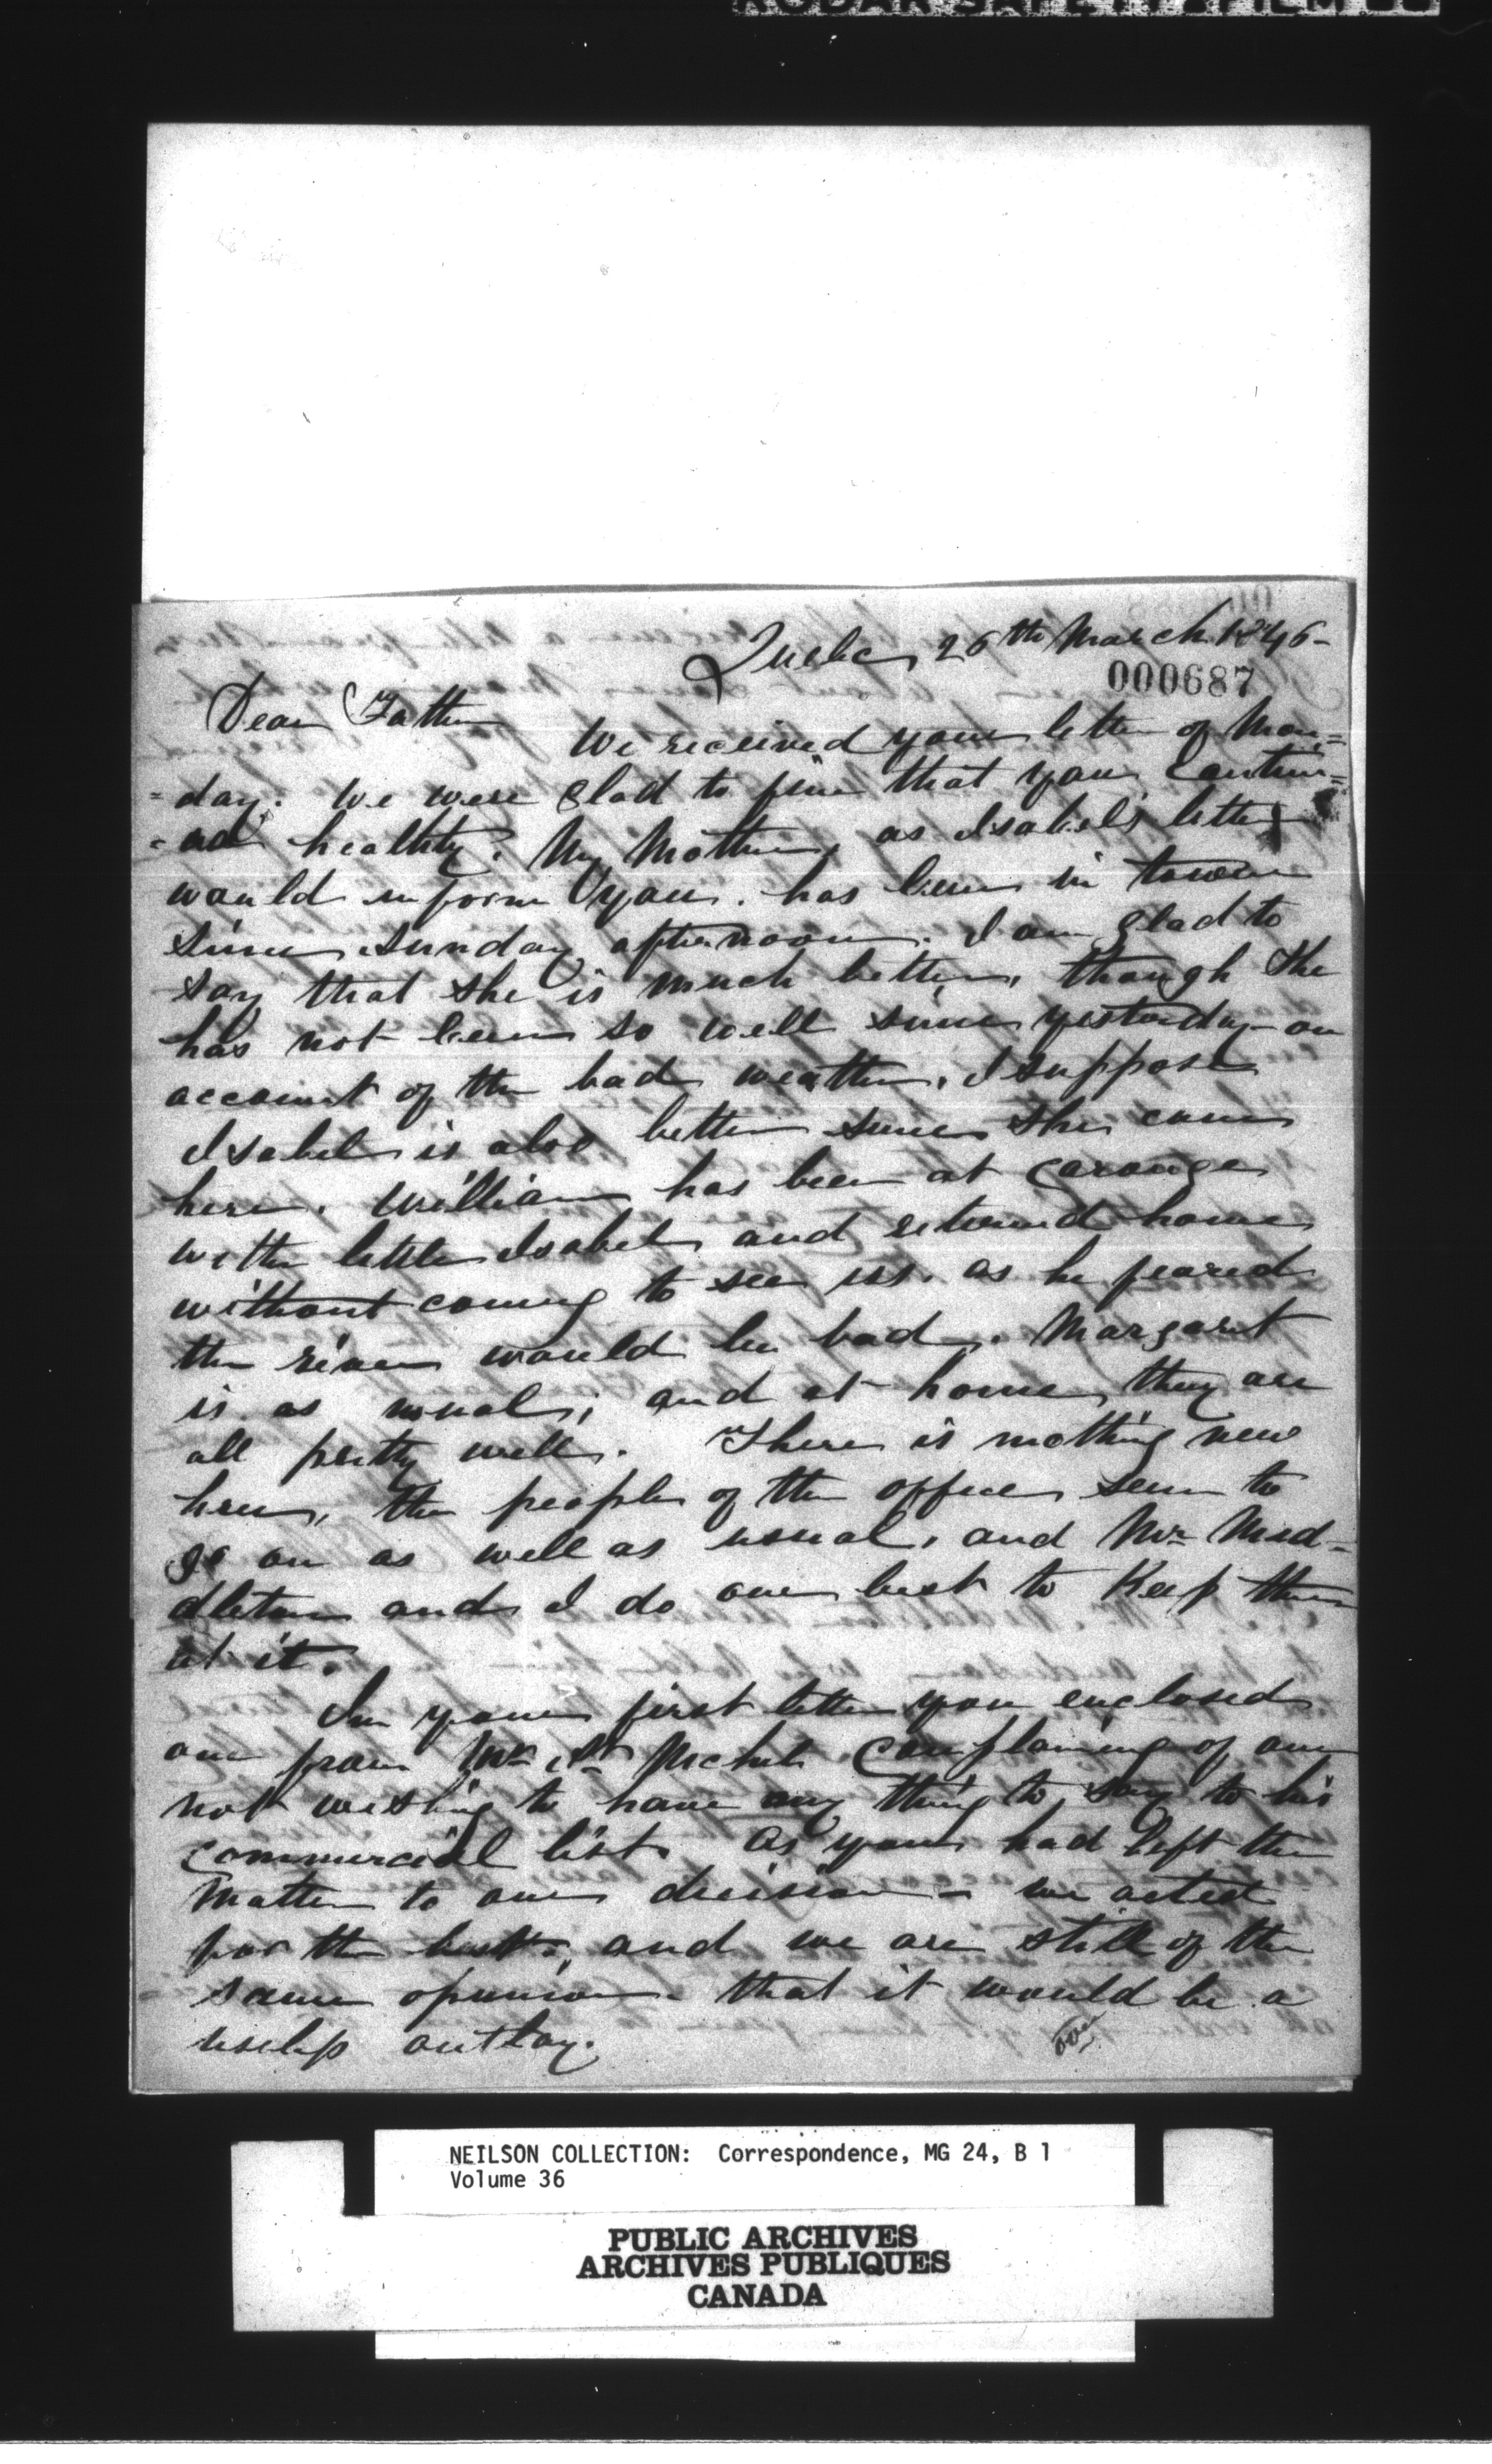 KODAK SAFETY FILM
Quebec, 26th March 1846-
000687
Dear Father
We received your letter of Mon=
=day. We were glad to find that you continu=
=ed healthy. My Mother, as Isabel's letter
would inform you. has been in town
since Sunday afternoon. I am glad to
say that she is much better, though she
has not been so well since yesterday on
account of the bad weather, I suppose
Isabel is also better since she came
here. William has been at
with little Isabel and returned home
without coming to see us. as he feared
the river would be bad. Margaret
is as usual; and at home they are
all pretty well. There is nothing new
here, the people of the office seem to
go on as well as usual, and Mr Mid-
dleton and I do our best to Keep them
at it.
In your first letter you enclosed
one from Mr St Michel Complaining of our
not wishing to have any thing to say to his
commercial list. As you had left the
matter to our decision - we acted
for the best. and we are still of the
same opinion. that it would be a
useless outlay.
over
NEILSON COLLECTION: Correspondence, MG 24, B 1
Volume 36
PUBLIC ARCHIVES
ARCHIVES PUBLIQUES
CANADA